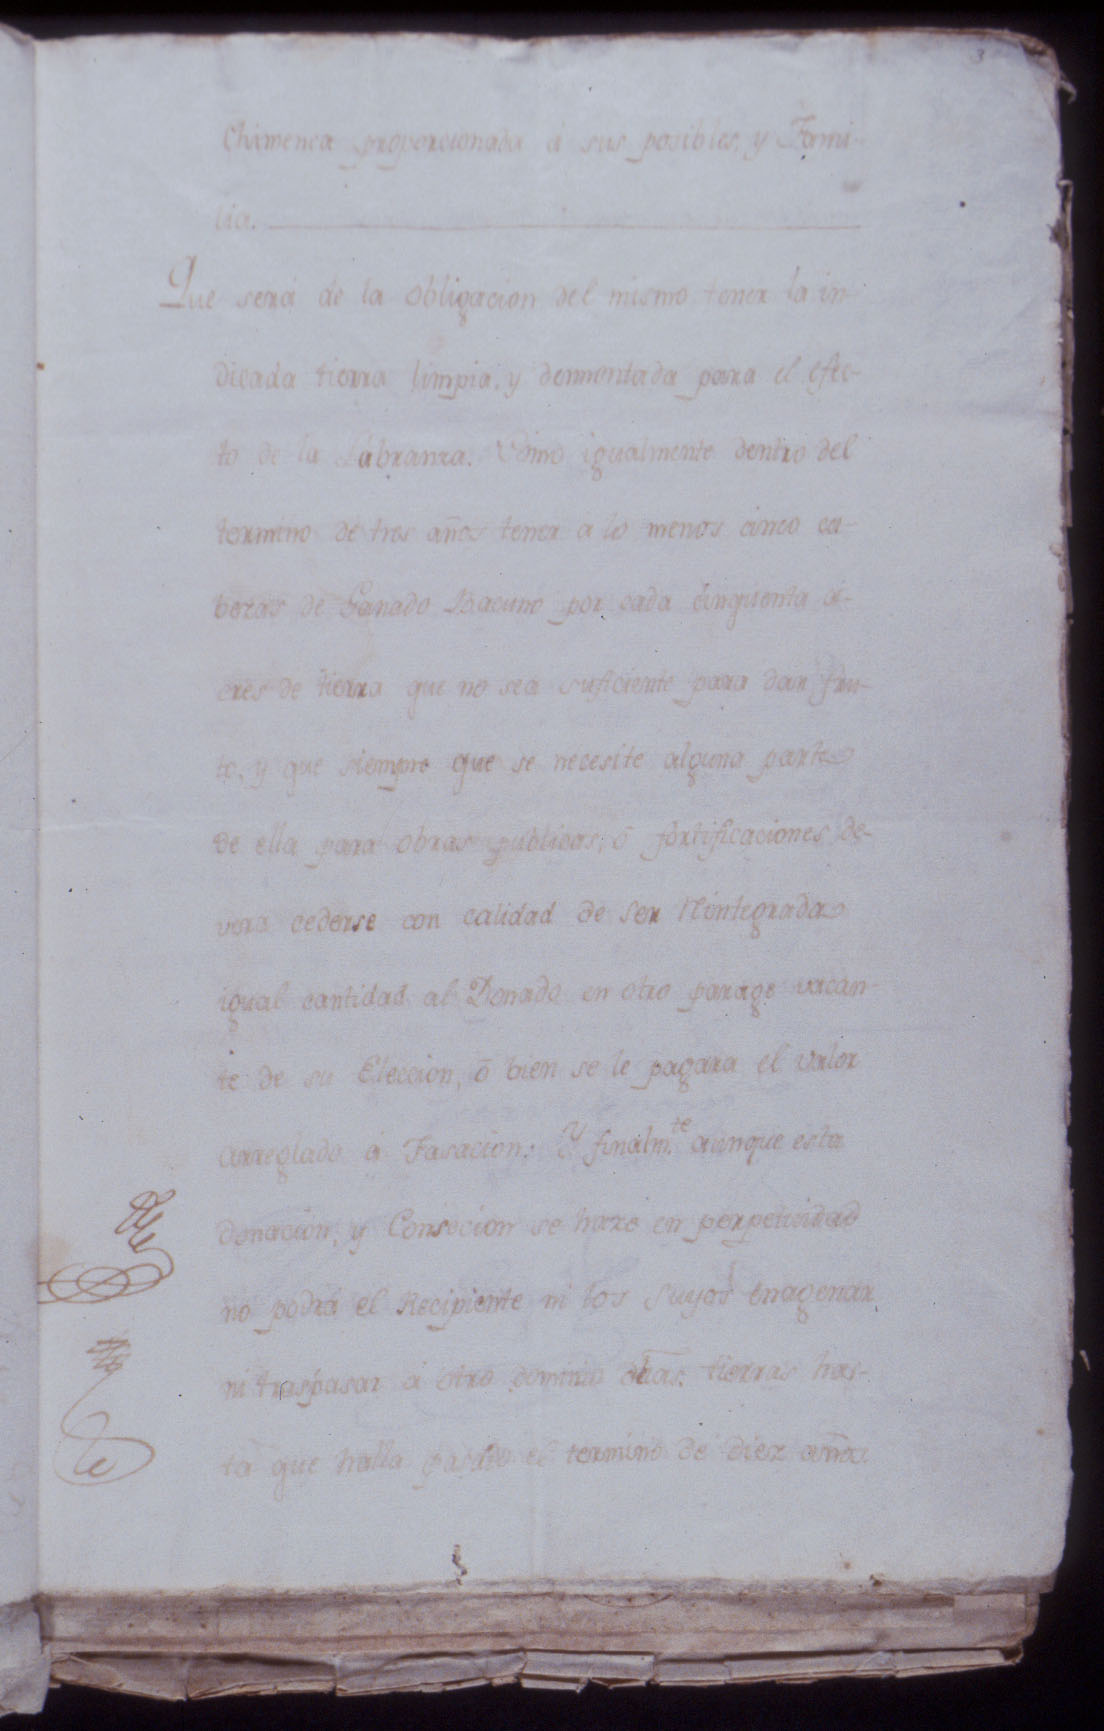 3
Chimenea proporcionada á sus posibles, y Fami-
lia.
Que será de la obligacion del mismo tener la in-
dicada tierra limpia, y desmontada para el efec-
to de la Labranza. Como igualmente dentro del
termino de tres años tener a lo menos cinco ca-
bezas de Ganado Bacuno por cada cinquenta á-
cres de tierra que no sea suficiente para dar fru-
to, y que siempre que se necesite alguna parte
de ella para obras publicas, ó fortificaciones de-
verá cederse con calidad de ser Reintegrada
igual cantidad al Donado en otro parage vacan-
te de su Eleccion, ó bien se le pagara el valor
arreglado á Tasacion: Y finalm.te aunque esta
donacion, y Consecion se hace en perpetuidad
no podrá el Recipiente ni los suyos enagenar
ni traspasar á otro dominio dhas. tierras has-
ta que halla pasado el termino de diez años